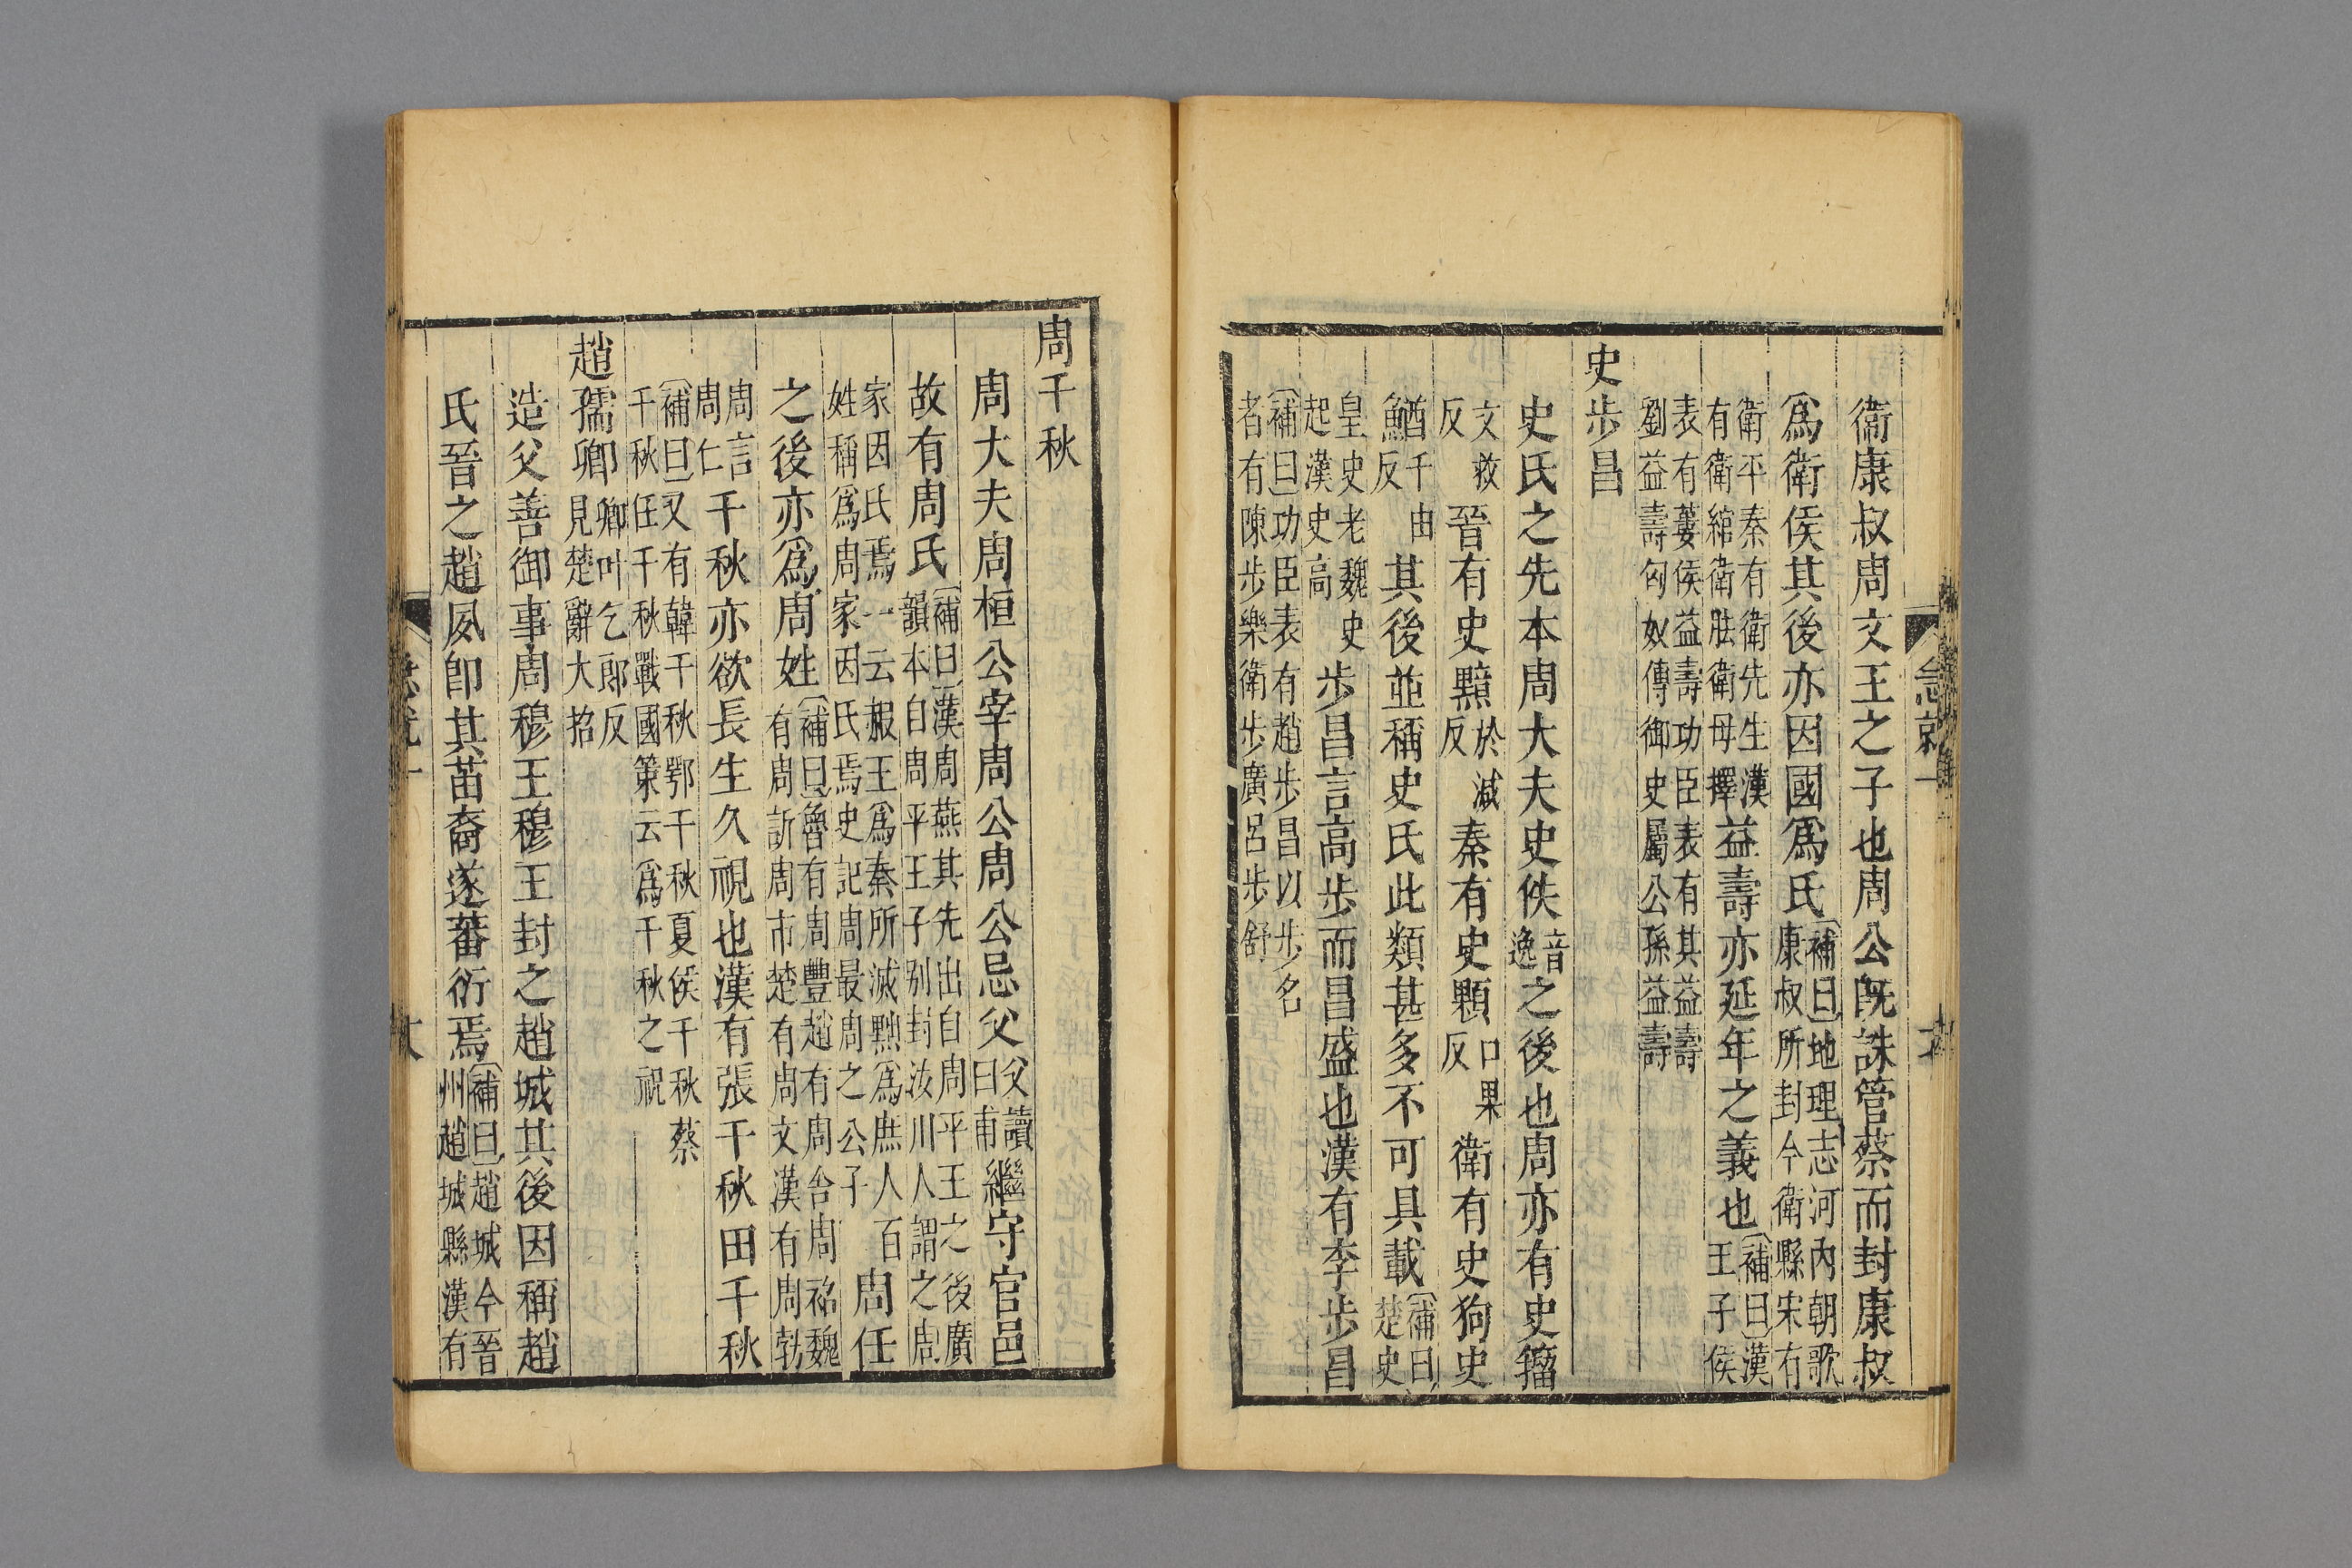 衞康叔周文王之子也周公旣誅管蔡而封康叔
爲衛侯其後亦因國爲氏補曰地理志河內朝歌康叔所封今衛縣宋有
衛平秦有衛先生漢有衛綰衛胠衛母擇益壽亦延年之義也補曰漢王子侯
表有蔞侯益壽功臣表有其益壽劉益壽匈奴傳御史屬公孫益壽
史步昌
史氏之先本周大夫史佚音逸之後也周亦有史籀
文救反晉有史黶於減反秦有史顆口果反衛有史狗史
鰌酋千由反其後並稱史氏此類甚多不可具載補曰楚史
皇史老魏史起漢史高步昌言高步而昌盛也漢有李步昌
補曰功臣表有趙步昌以步名者有陳步樂衛步廣呂步舒
急就一
周千秋
周大夫周桓公宰周公周公忌父父讀曰甫繼守官邑
故有周氏補曰漢周燕其先出自周平王之後廣韻本自周平王子別封汝川人謂之周
家因氏焉一云赧王爲秦所滅黜爲庶人百姓稱爲周家因氏焉史記周最周之公子周任
之後亦爲周姓補曰魯有周豐趙有周䄂周袑魏有周訢周市楚有周文漢有周勃
周言周仁千秋亦欲長生久視也漢有張千秋田千秋
補曰又有韓千秋鄂千秋夏侯千秋蔡千秋任千秋戰國策云爲千秋之祝
趙孺卿卿叶乞郎反見楚辭大招
造父善御事周穆王穆王封之趙城其後因稱趙
氏晉之趙夙卽其苗裔遂蕃衍焉補曰趙城今晉州趙城縣漢有